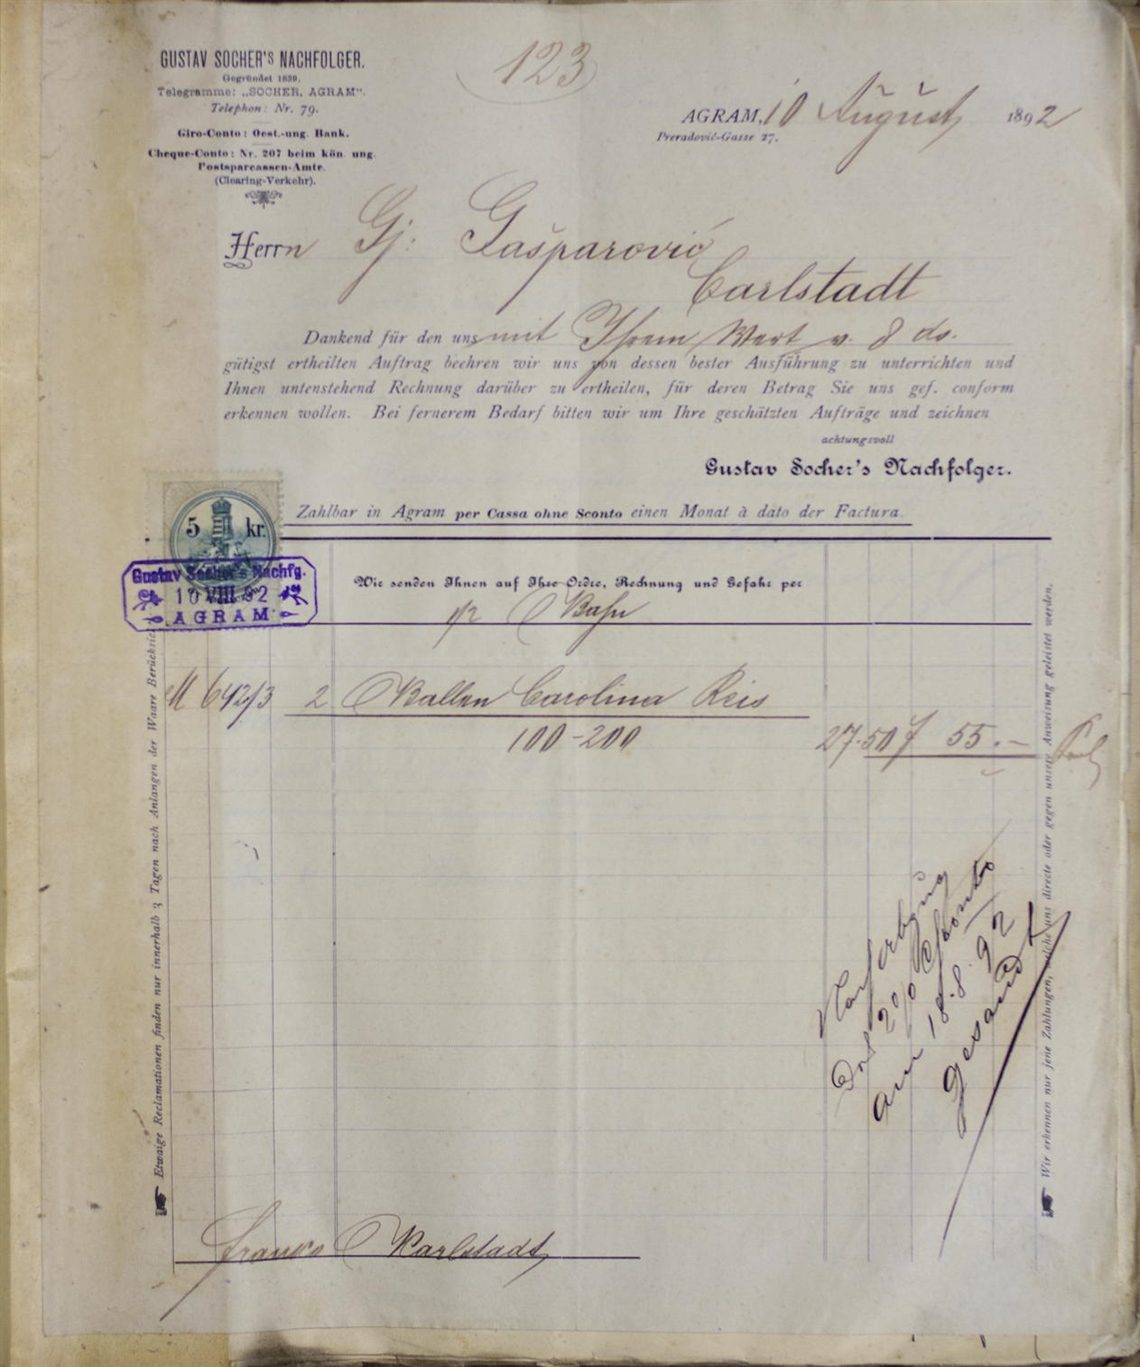 GUSTAV SOCHER'S NACHFOLGER.
Gegründet 1839.
Telegramme: „SOCHER, AGRAM“.
Telephon: Nr. 79.
Giro-Conto: Oest.-ung. Bank.
Cheque-Conto: Nr. 207 beim kön. ung.
Postsparcassen-Amte.
(Clearing-Verkehr).
123
AGRAM, 10 August 1892
Preradović-Gasse 27.
Herrn Gj: Gašparović
Carlstadt
Dankend für den uns mit Ihrem Wert v. 8 ds.
gütigst ertheilten Auftrag beehren wir uns von dessen bester Ausführung zu unterrichten und
Ihnen untenstehend Rechnung darüber zu ertheilen, für deren Betrag Sie uns gef. conform
erkennen wollen. Bei fernerem Bedarf bitten wir um Ihre geschätzten Aufträge und zeichnen
achtungsvoll
Gustav Socher's Nachfolger.
Zahlbar in Agram per Cassa ohne Sconto einen Monat à dato der Factura.
5 kr.
Gustav Socher's Nachfg.
10 VIII 92
AGRAM
Wir senden Ihnen auf Ihre Ordre, Rechnung und Gefahr per
Bahn
M 642/3 2 Ballen Carolina Reis
100-200 27.50 f 55.-
2% Sconto
am 18.8.92
gesandt
franco Karlstadt
Etwaige Reclamationen finden nur innerhalb 3 Tagen nach Anlangen der Waare
Wir erkennen nur jene Zahlungen, welche uns directe oder gegen unsere Anweisung geleistet werden.